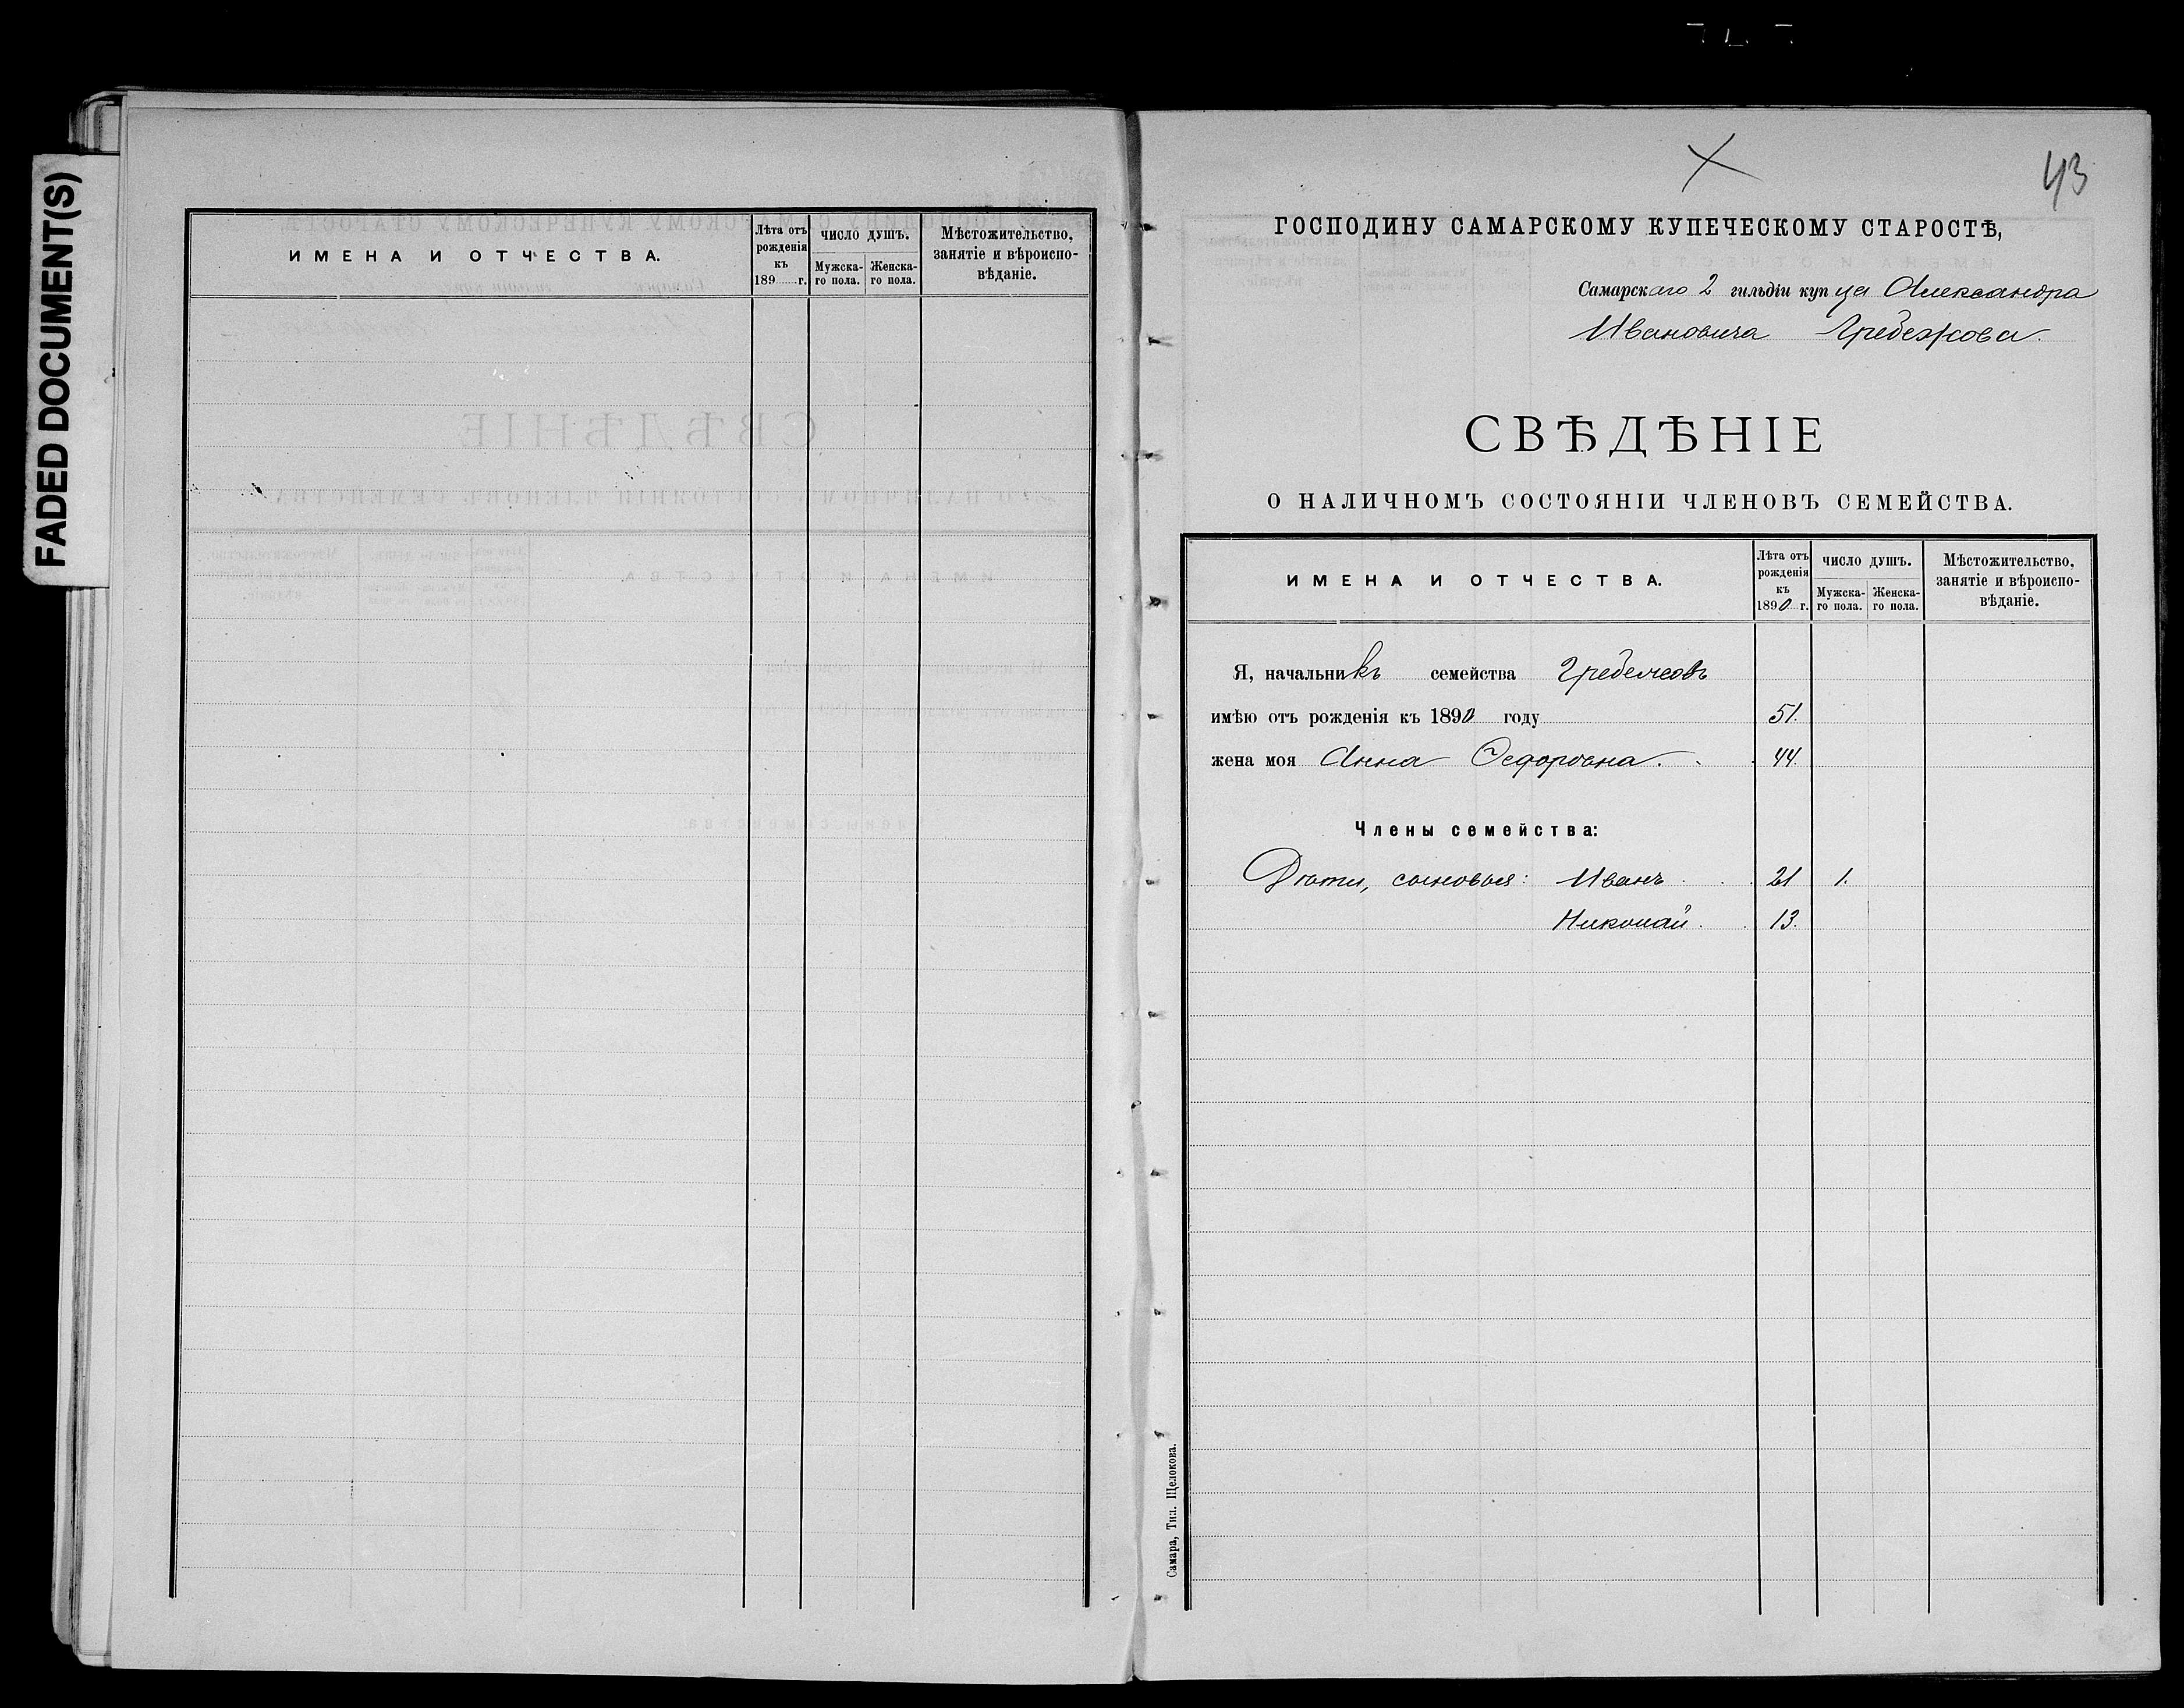 FADED DOCUMENT(S)
ИМЕНА И ОТЧЕСТВА.
Лѣта отъ рожденія къ 189 г.
ЧИСЛО ДУШЪ.
Мужскаго пола.
Женскаго пола.
Мѣстожительство, занятіе и вѣроисповѣданіе.
43
ГОСПОДИНУ САМАРСКОМУ КУПЕЧЕСКОМУ СТАРОСТѢ,
Самарскаго 2 гильдіи купца Александра
Ивановича Гребежкова.
СВѢДѢНІЕ
О НАЛИЧНОМЪ СОСТОЯНІИ ЧЛЕНОВЪ СЕМЕЙСТВА.
ИМЕНА И ОТЧЕСТВА.
Лѣта отъ рожденія къ 1890 г.
ЧИСЛО ДУШЪ.
Мужскаго пола.
Женскаго пола.
Мѣстожительство, занятіе и вѣроисповѣданіе.
Я, начальникъ семейства
имѣю отъ рожденія къ 1890 году 51.
жена моя Анна Федоровна. 44.
Члены семейства:
Дѣти, сыновья: Иванъ 21 1.
Николай. 13.
Самара, Тип. Щелокова.